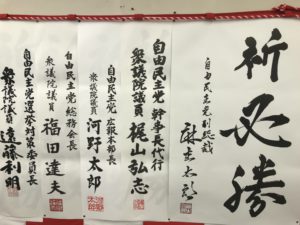 祈必勝
自由民主党副総裁
麻生太郎
自由民主党幹事長代行
衆議院議員 梶山弘志
自由民主党 広報本部長
衆議院議員 河野太郎
自由民主党総務会長
衆議院議員 福田達夫
自由民主党選挙対策委員長
衆議院議員 遠藤利明